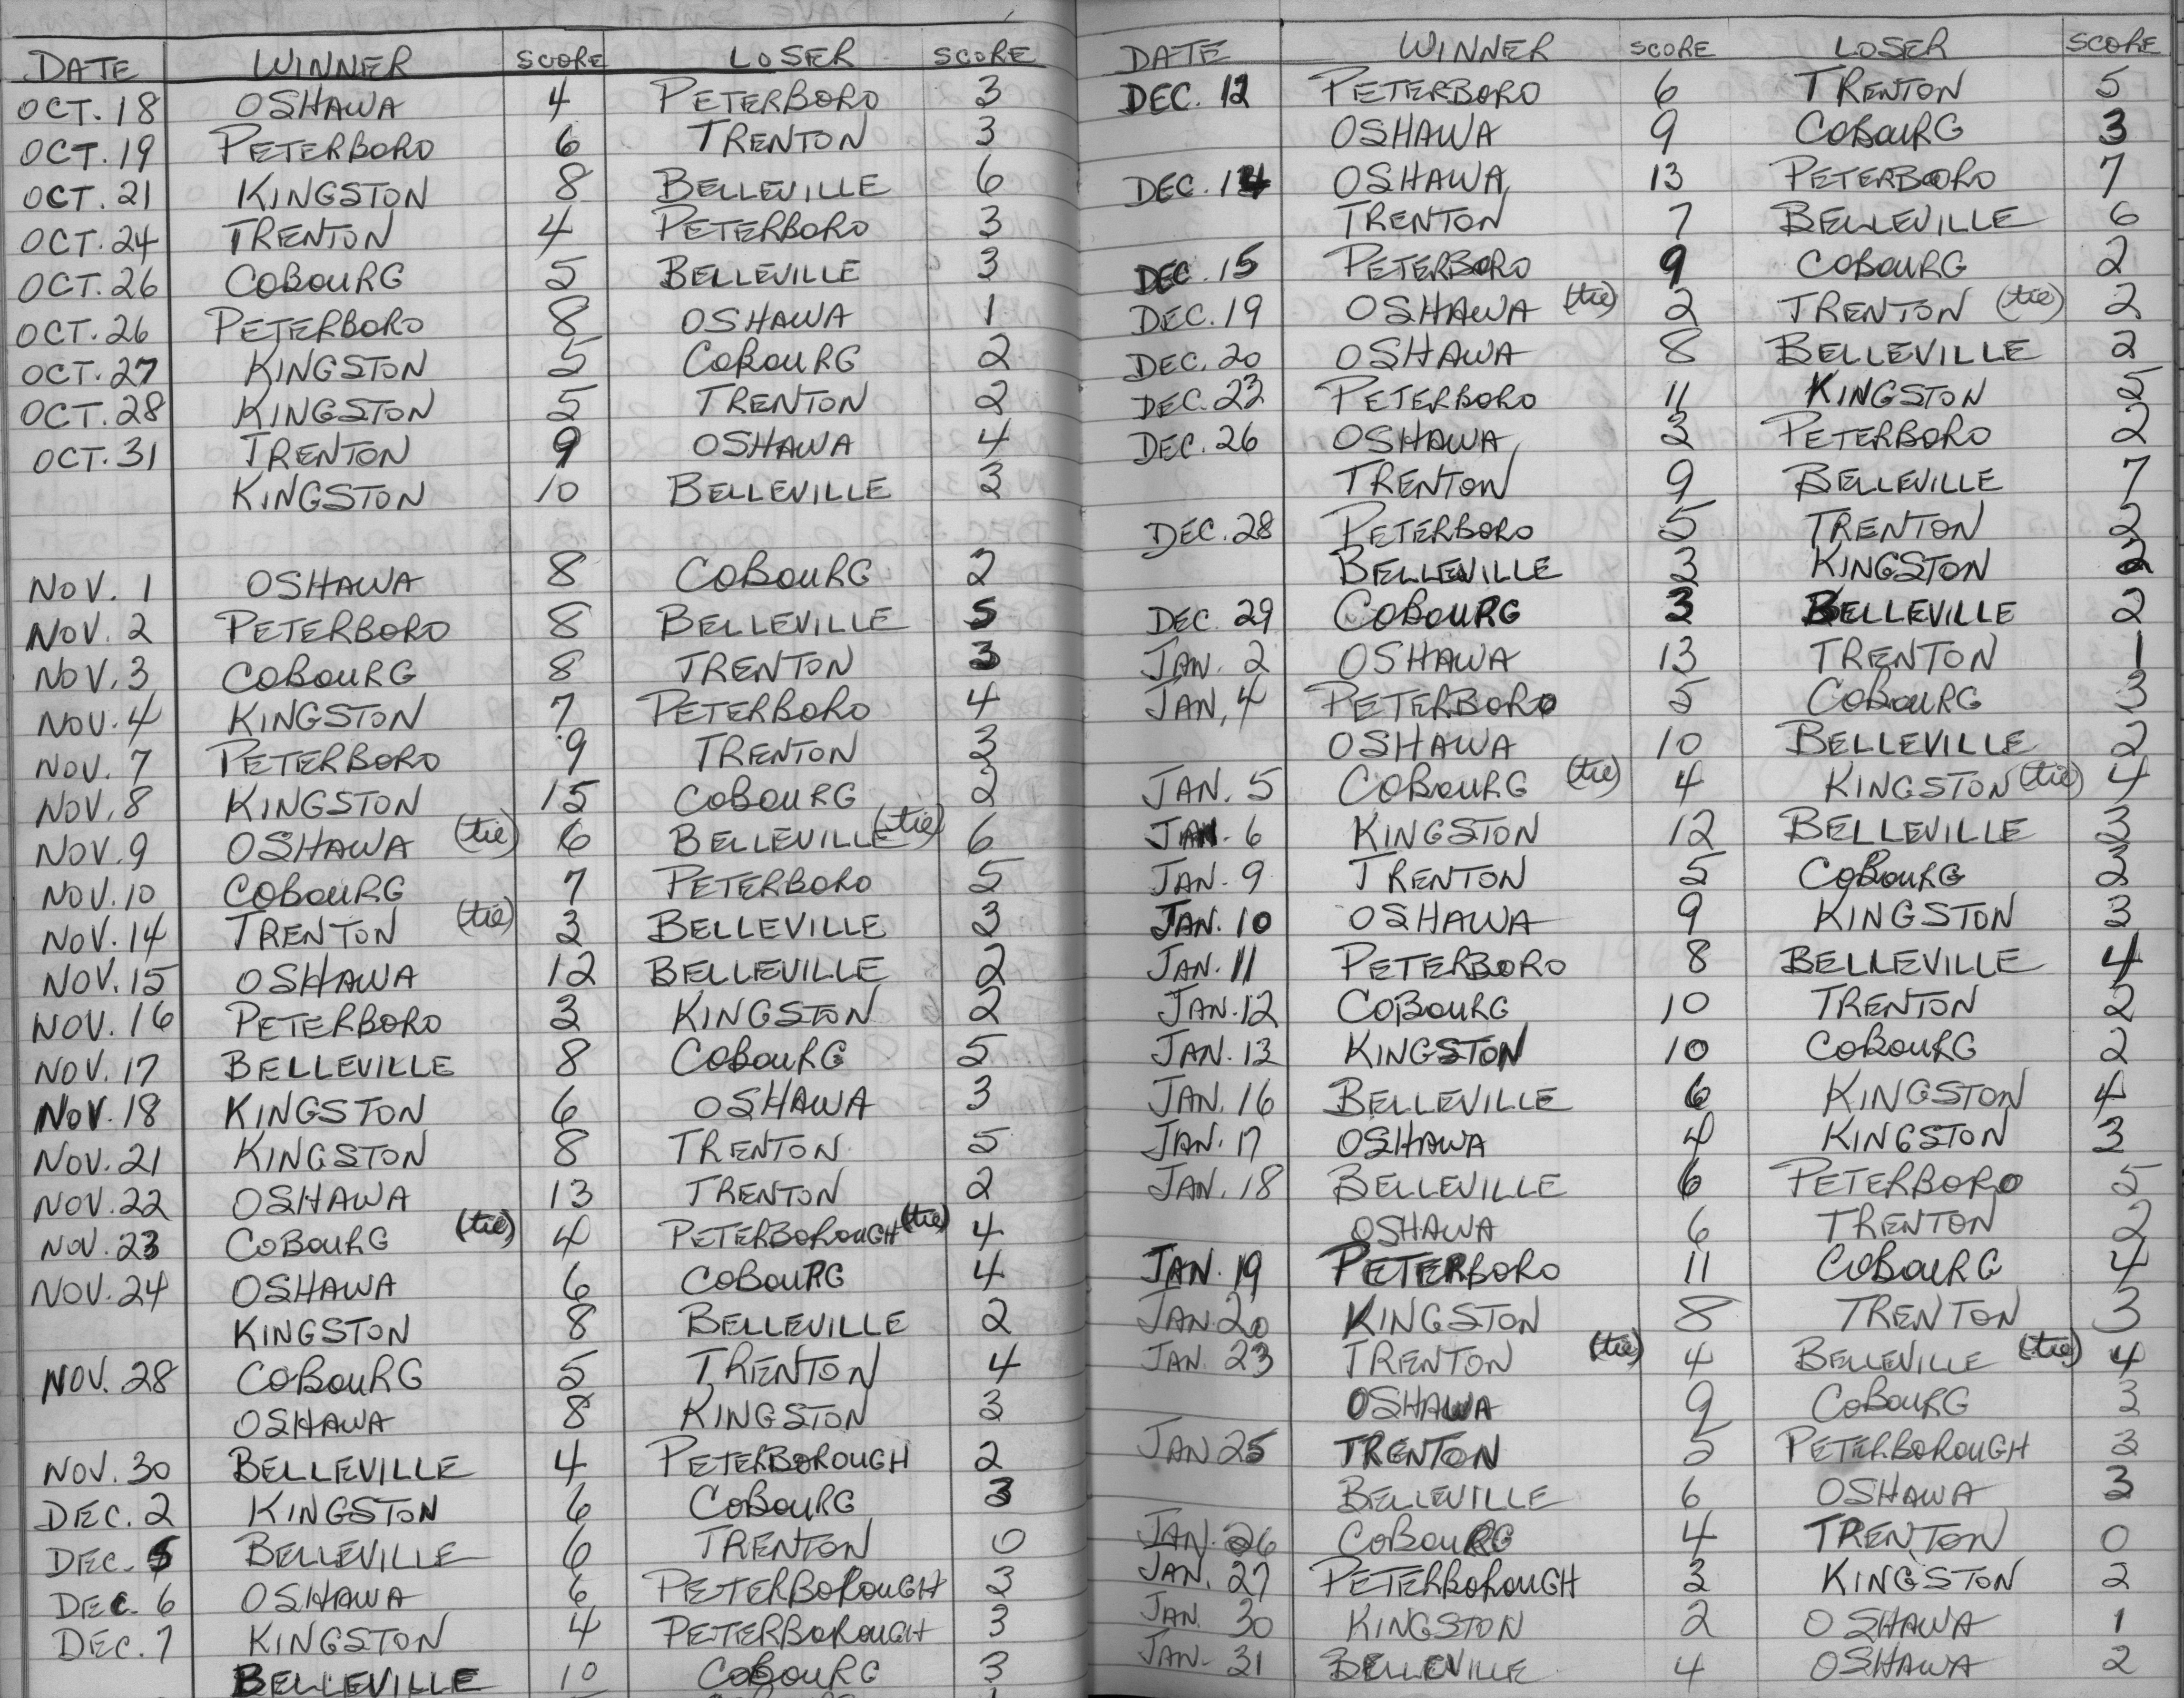 DATE WINNER SCORE LOSER SCORE
OCT. 18 OSHAWA 4 PETERBORO 3
OCT. 19 PETERBORO 6 TRENTON 3
OCT. 21 KINGSTON 8 BELLEVILLE 6
OCT. 24 TRENTON 4 PETERBORO 3
OCT. 26 COBOURG 5 BELLEVILLE 3
OCT. 26 PETERBORO 8 OSHAWA 1
OCT. 27 KINGSTON 5 COBOURG 2
OCT. 28 KINGSTON 5 TRENTON 2
OCT. 31 TRENTON 9 OSHAWA 4
KINGSTON 10 BELLEVILLE 3
NOV. 1 OSHAWA 8 COBOURG 2
NOV. 2 PETERBORO 8 BELLEVILLE 5
NOV. 3 COBOURG 8 TRENTON 3
NOV. 4 KINGSTON 7 PETERBORO 4
NOV. 7 PETERBORO 9 TRENTON 3
NOV. 8 KINGSTON 15 COBOURG 2
NOV. 9 OSHAWA (tie) 6 BELLEVILLE (tie) 6
NOV. 10 COBOURG 7 PETERBORO 5
NOV. 14 TRENTON (tie) 3 BELLEVILLE 3
NOV. 15 OSHAWA 12 BELLEVILLE 2
NOV. 16 PETERBORO 3 KINGSTON 2
NOV. 17 BELLEVILLE 8 COBOURG 5
NOV. 18 KINGSTON 6 OSHAWA 3
NOV. 21 KINGSTON 8 TRENTON 5
NOV. 22 OSHAWA 13 TRENTON 2
NOV. 23 COBOURG (tie) 4 PETERBOROUGH (tie) 4
NOV. 24 OSHAWA 6 COBOURG 4
KINGSTON 8 BELLEVILLE 2
NOV. 28 COBOURG 5 TRENTON 4
OSHAWA 8 KINGSTON 3
NOV. 30 BELLEVILLE 4 PETERBOROUGH 2
DEC. 2 KINGSTON 6 COBOURG 3
DEC. 5 BELLEVILLE 6 TRENTON 0
DEC. 6 OSHAWA 6 PETERBOROUGH 3
DEC. 7 KINGSTON 4 PETERBOROUGH 3
BELLEVILLE 10 COBOURG 3
DATE WINNER SCORE LOSER SCORE
DEC. 12 PETERBORO 6 TRENTON 5
OSHAWA 9 COBOURG 3
DEC. 14 OSHAWA 13 PETERBORO 7
TRENTON 7 BELLEVILLE 6
DEC. 15 PETERBORO 9 COBOURG 2
DEC. 19 OSHAWA (tie) 2 TRENTON (tie) 2
DEC. 20 OSHAWA 8 BELLEVILLE 2
DEC. 23 PETERBORO 11 KINGSTON 5
DEC. 26 OSHAWA 3 PETERBORO 2
TRENTON 9 BELLEVILLE 7
DEC. 28 PETERBORO 5 TRENTON 2
BELLEVILLE 3 KINGSTON 2
DEC. 29 COBOURG 3 BELLEVILLE 2
JAN. 2 OSHAWA 13 TRENTON 1
JAN. 4 PETERBORO 5 COBOURG 3
OSHAWA 10 BELLEVILLE 2
JAN. 5 COBOURG (tie) 4 KINGSTON (tie) 4
JAN. 6 KINGSTON 12 BELLEVILLE 3
JAN. 9 TRENTON 5 COBOURG 3
JAN. 10 OSHAWA 9 KINGSTON 3
JAN. 11 PETERBORO 8 BELLEVILLE 4
JAN. 12 COBOURG 10 TRENTON 2
JAN. 13 KINGSTON 10 COBOURG 2
JAN. 16 BELLEVILLE 6 KINGSTON 4
JAN. 17 OSHAWA 4 KINGSTON 3
JAN. 18 BELLEVILLE 6 PETERBORO 5
OSHAWA 6 TRENTON 2
JAN. 19 PETERBORO 11 COBOURG 4
JAN. 20 KINGSTON 8 TRENTON 3
JAN. 23 TRENTON (tie) 4 BELLEVILLE (tie) 4
OSHAWA 9 COBOURG 3
JAN 25 TRENTON 5 PETERBOROUGH 3
BELLEVILLE 6 OSHAWA 3
JAN. 26 COBOURG 4 TRENTON 0
JAN. 27 PETERBOROUGH 3 KINGSTON 2
JAN. 30 KINGSTON 2 OSHAWA 1
JAN. 31 BELLEVILLE 4 OSHAWA 2